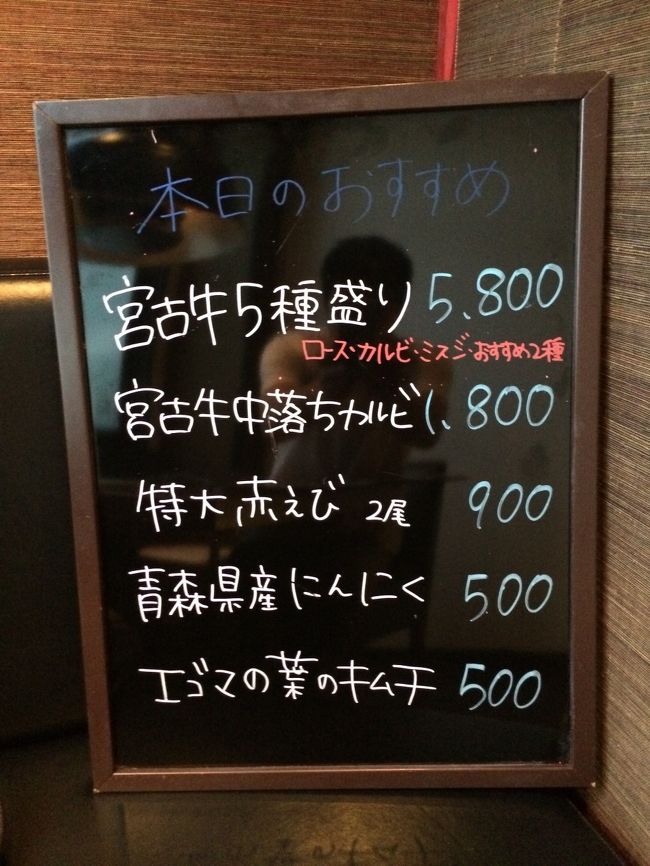 本日のおすすめ
宮古牛5種盛り 5.800
ロース・カルビ・ミスジ・おすすめ2種
宮古牛中落ちカルビ 1.800
特大赤えび 2尾 900
青森県産にんにく 500
エゴマの葉のキムチ 500